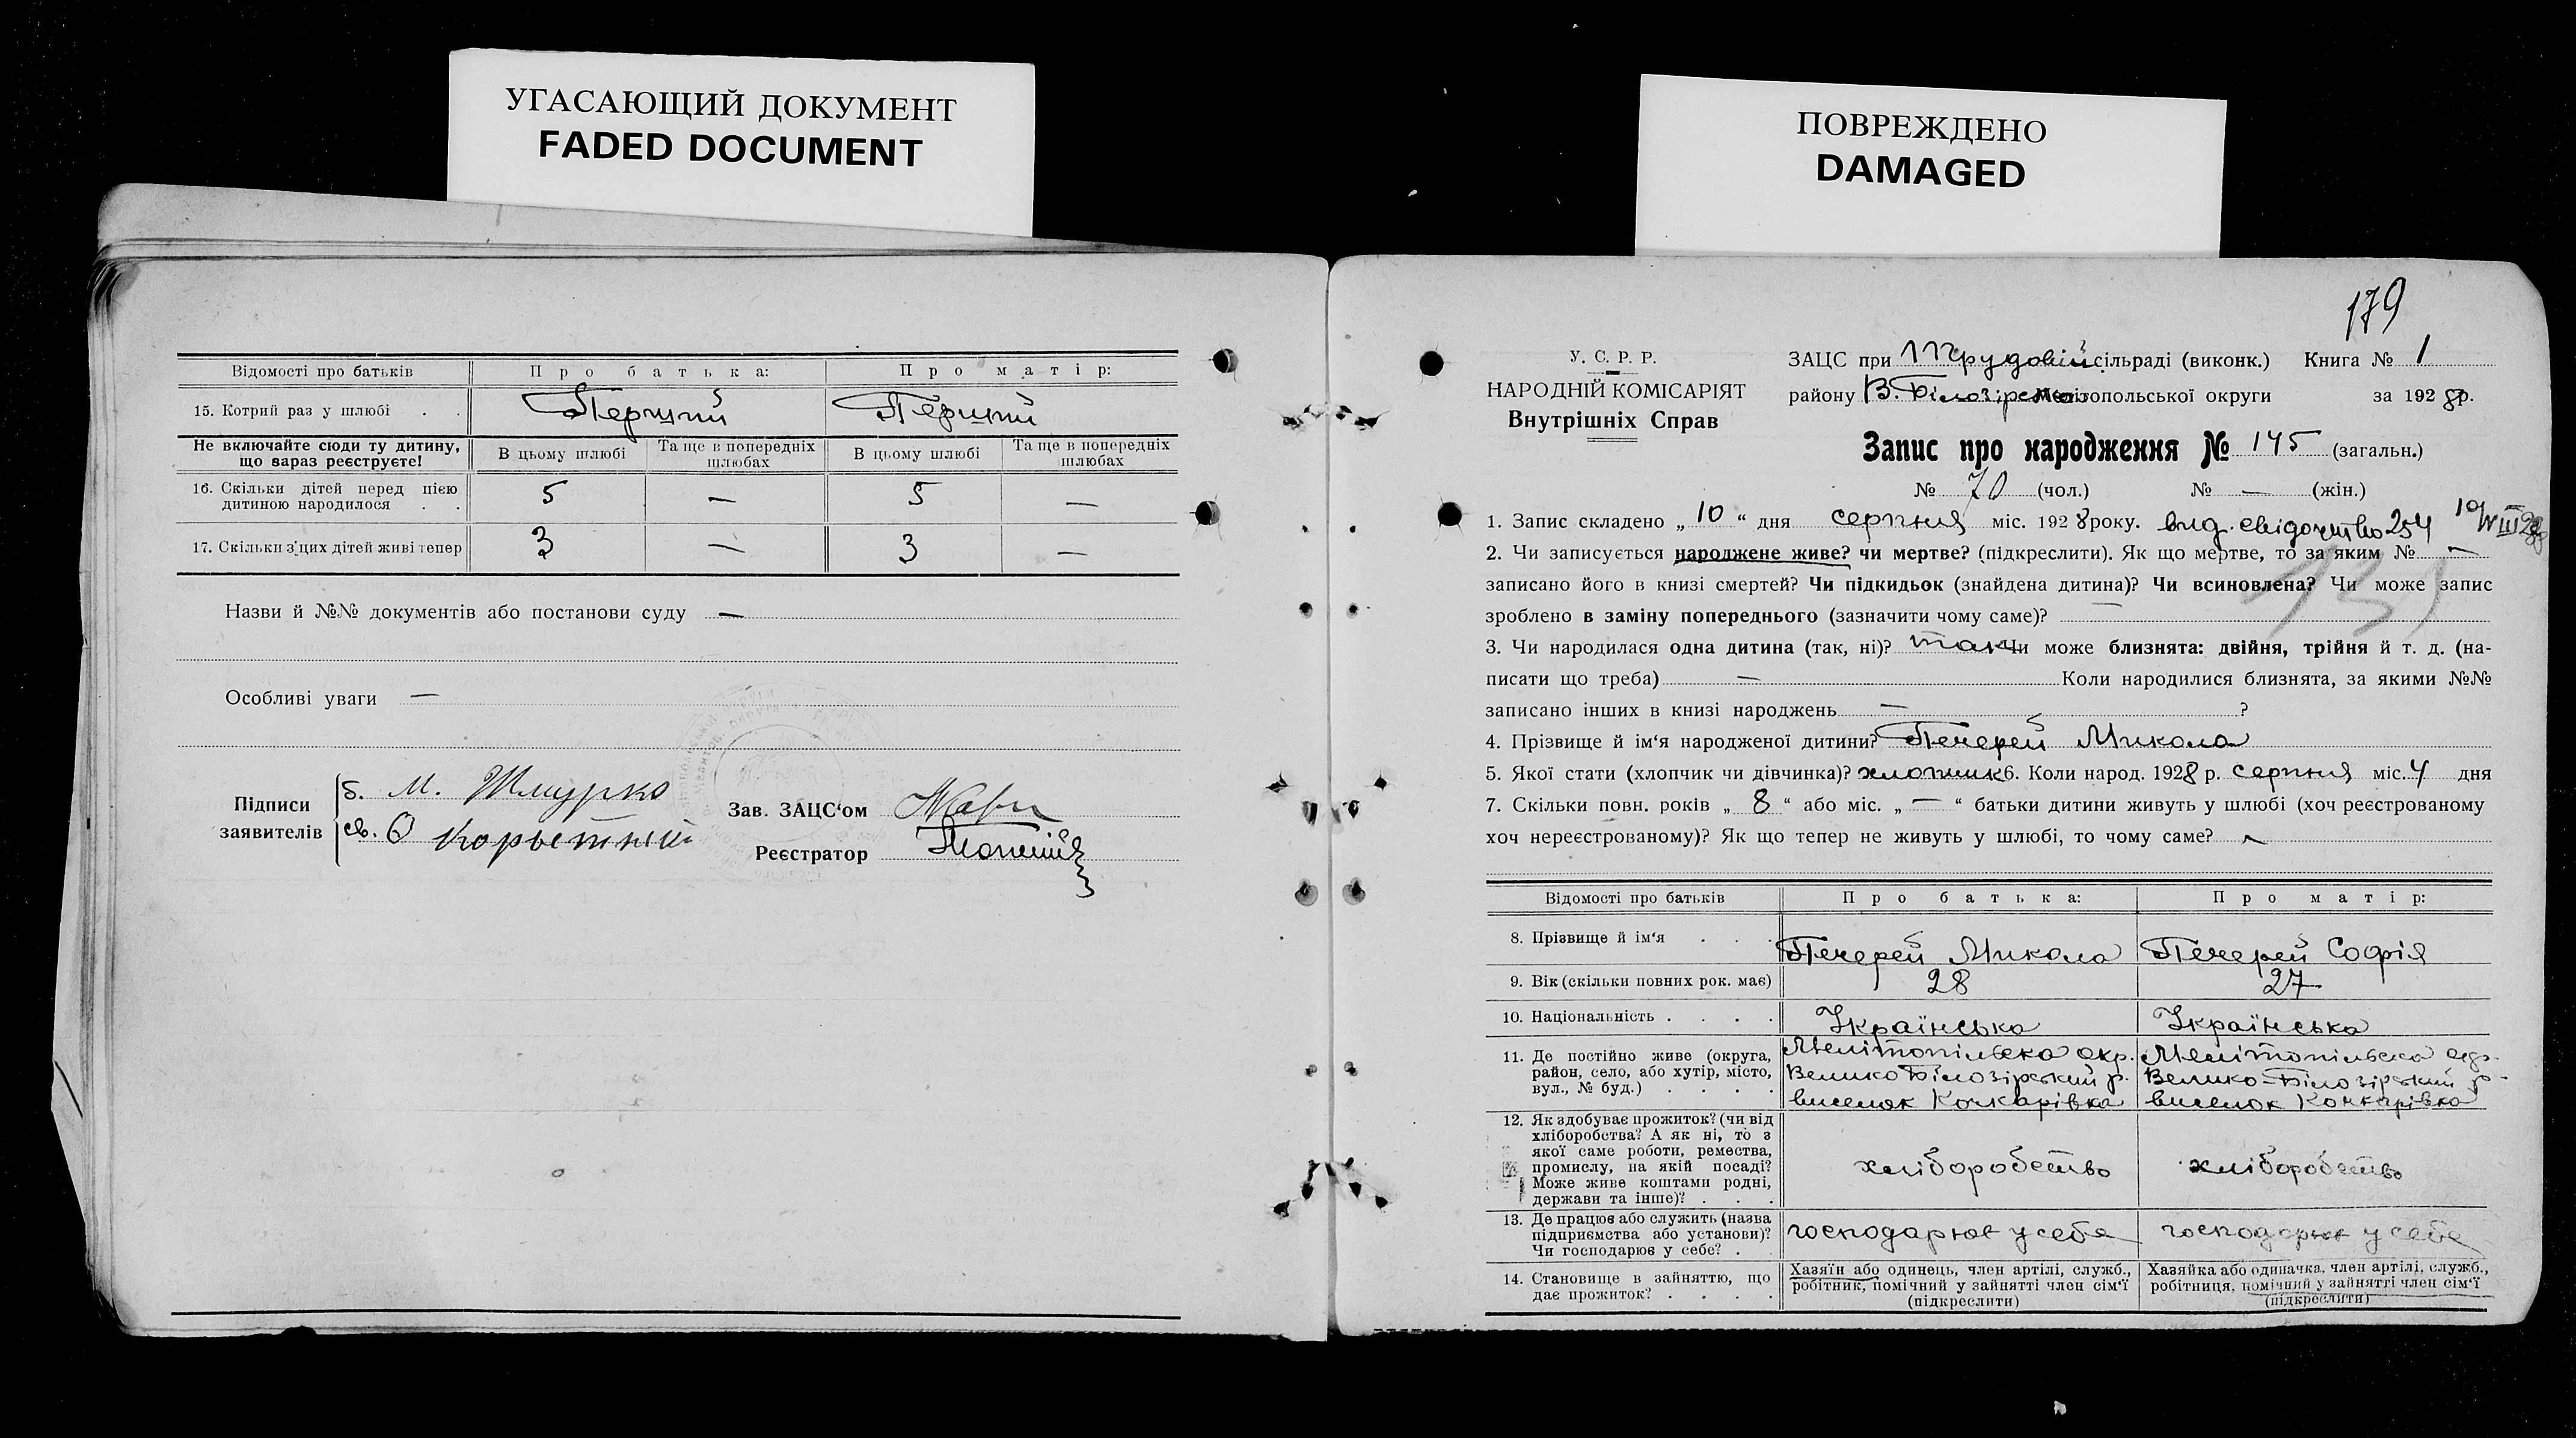 УГАСАЮЩИЙ ДОКУМЕНТ
FADED DOCUMENT
Відомості про батьків Про батька: Про матір:
15. Котрий раз у шлюбі . . Перший Перший
Не включайте сюди ту дитину, що вараз реєструєте!
В цьому шлюбі Та ще в попередніх шлюбах В цьому шлюбі Та ще в попередніх шлюбах
16. Скільки дітей перед цією
дитиною народилося . . 5 — 5 —
17. Скільки з цих дітей живі тепер 3 — 3 —
Назви й №№ документів або постанови суду —
Особливі уваги —
Підписи заявителів
б. М. Жмурко
св. О
Зав. ЗАЦС'ом
Реєстратор
ПОВРЕЖДЕНО
DAMAGED
179
У. С. Р. Р.
НАРОДНІЙ КОМІСАРІЯТ
Внутрішніх Справ
ЗАЦС при Трудовій сільраді (виконк.) Книга № 1
району В. Білозірськ Мелітопольської округи за 1928 р.
Запис про народження № 145 (загальн.)
№ 70 (чол.) № — (жін.)
1. Запис складено „ 10 “ дня серпня міс. 1928 року. вид. свідоцтво 254 10/VIII 28
2. Чи записується народжене живе? чи мертве? (підкреслити). Як що мертве, то за яким № —
записано його в книзі смертей? Чи підкидьок (знайдена дитина)? Чи всиновлена? Чи може запис
зроблено в заміну попереднього (зазначити чому саме)? —
3. Чи народилася одна дитина (так, ні)? так Чи може близнята: двійня, трійня й т. д. (на-
писати що треба) — Коли народилися близнята, за якими №№
записано інших в книзі народжень — ?
4. Прізвище й ім‘я народженої дитини? Печерей Микола
5. Якої стати (хлопчик чи дівчинка)? хлопчик 6. Коли народ. 1928 р. серпня міс. 4 дня
7. Скільки повн. років „ 8 “ або міс. „ — “ батьки дитини живуть у шлюбі (хоч реєстрованому
хоч нереєстрованому)? Як що тепер не живуть у шлюбі, то чому саме?
Відомості про батьків Про батька: Про матір:
8. Прізвище й ім‘я . . . Печерей Микола Печерей Софія
9. Вік (скільки повних рок. має) 28 27
10. Національність . . . . Українська Українська
11. Де постійно живе (округа,
район, село, або хутір, місто,
вул., № буд.) . . . .
Мелітопільска окр.
Велико Білозірський р.
виселок Кочкарівка
Мелітопільска окр.
Велико-Білозірський р.
виселок Кочкарівка
12. Як здобуває прожиток? (чи від
хліборобства? А як ні, то з
якої саме роботи, ремества,
промислу, на якій посаді?
Може живе коштами родні,
держави та інше)? . . .
хліборобство хліборобство
13. Де працює або служить (назва
підприємства або установи)?
Чи господарює у себе? .
господарює у себе господарює у себе
14. Становище в зайняттю, що
дає прожиток? . . . .
Хазяїн або одинець, член артілі, служб.,
робітник, помічний у зайнятті член сім‘ї
(підкреслити)
Хазяйка або одиначка, член артілі, служб.,
робітниця, помічний у зайнятті член сім‘ї
(підкреслити)